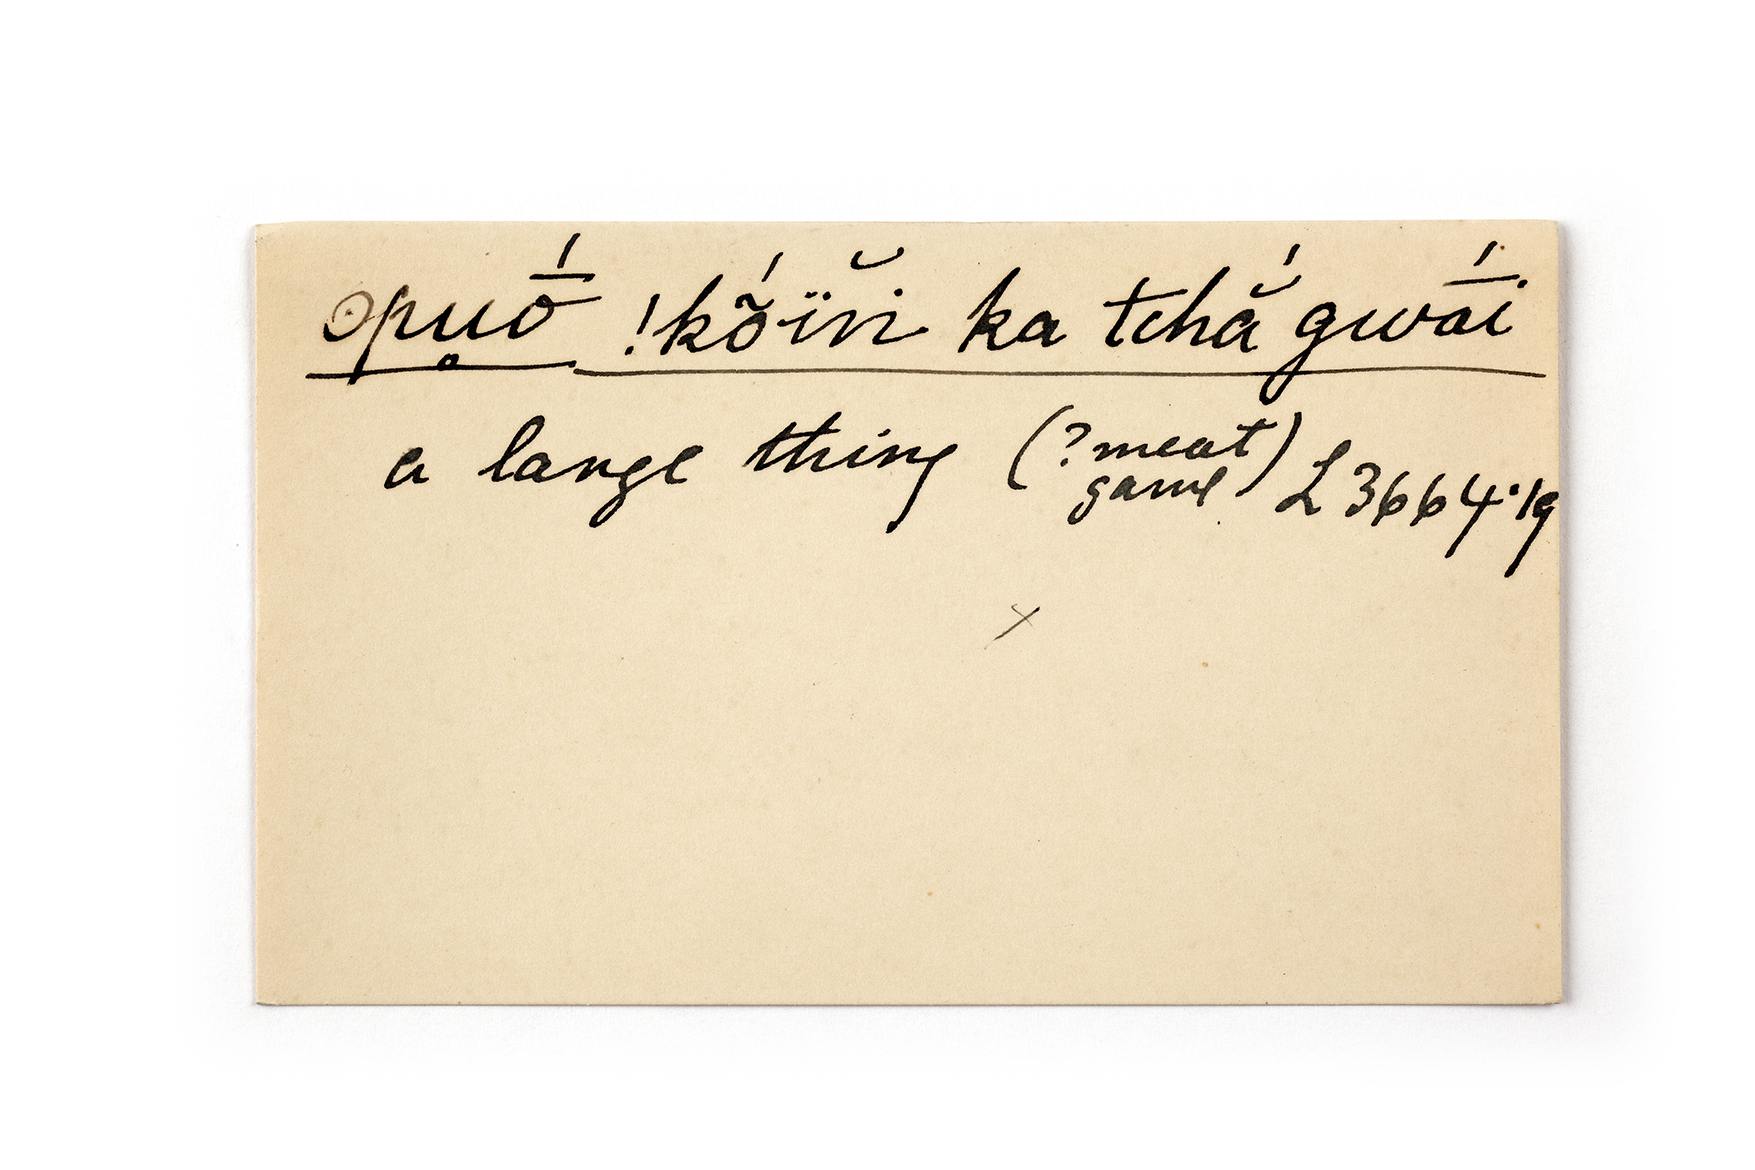 ʘpu̥ṓ́ !kṍïn̆i ka tchắ gwā́i
a large thing (? meat game) L 3664·19
x